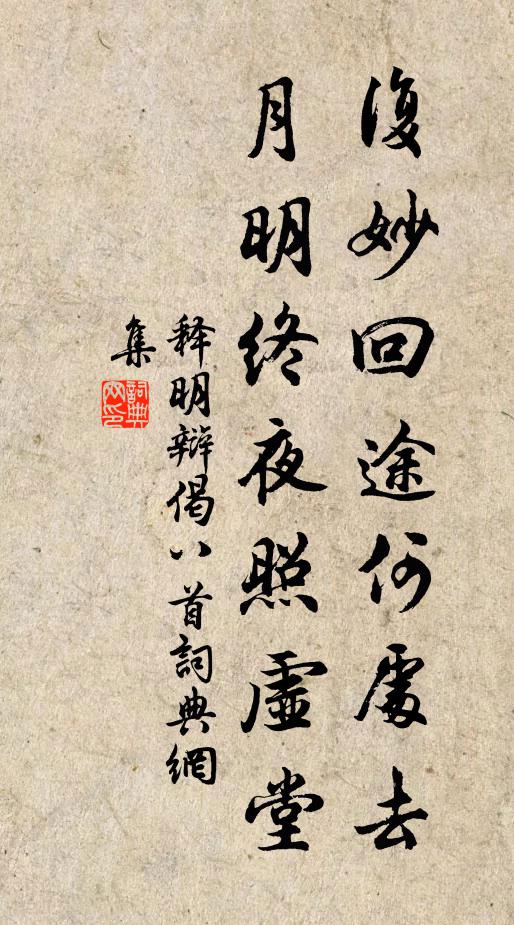 復妙回途何處去
月明終夜照虛堂
释明辯偈八首詞典網
集
詞典網印